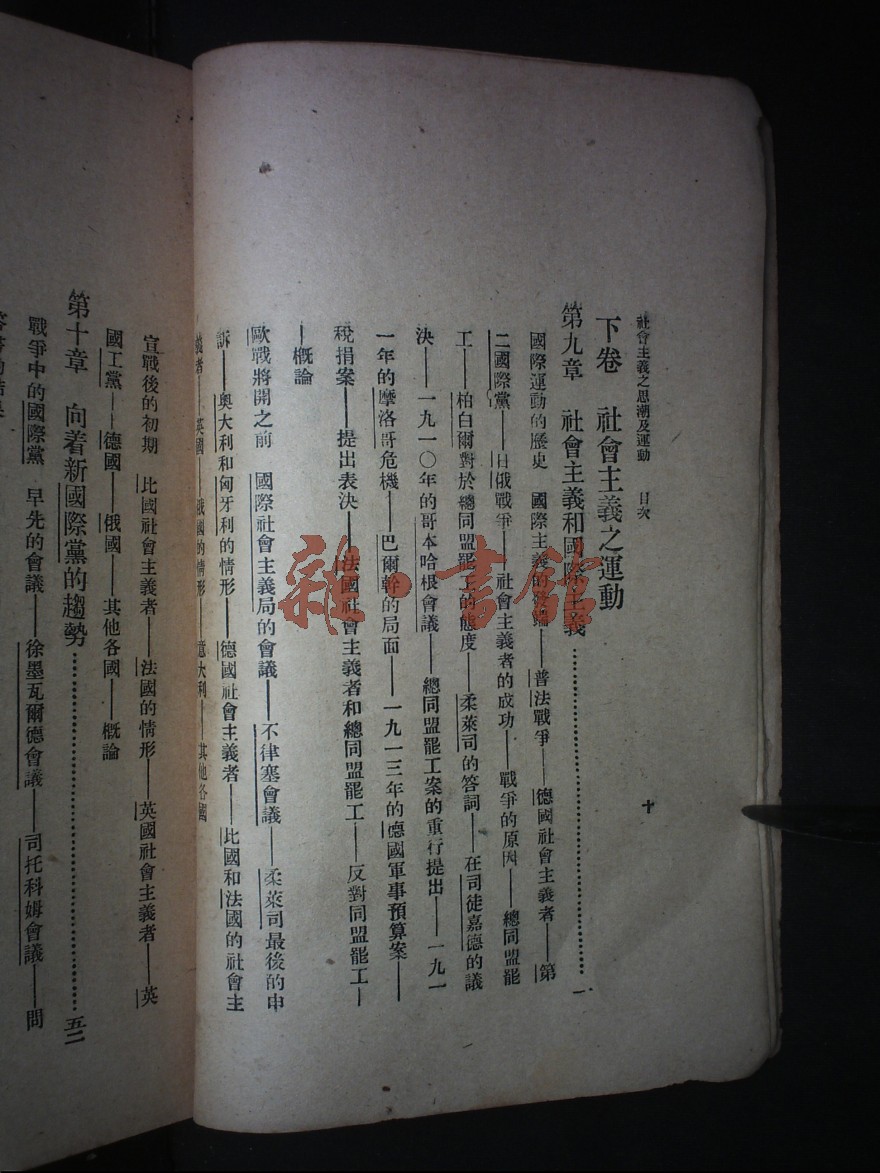 社會主義之思潮及運動　目次
十
下卷　社會主義之運動
第九章　社會主義和國際主義…………一
國際運動的歷史　國際主義的——普法戰爭——德國社會主義者——第
二國際黨——日俄戰爭——社會主義者的成功——戰爭的原因——總同盟罷
工——柏白爾對於總同盟罷工的態度——柔萊司的答詞——在司徒嘉德的議
決——一九一〇年的哥本哈根會議——總同盟罷工案的重行提出——一九一
一年的摩洛哥危機——巴爾幹的局面——一九一三年的德國軍事預算案——
稅捐案——提出表決——法國社會主義者和總同盟罷工——反對同盟罷工—
—概論
歐戰將開之前　國際社會主義局的會議——不律塞會議——柔萊司最後的申
訴——奧大利和匈牙利的情形——德國社會主義者——比國和法國的社會主
義者——英國——俄國的情形　意大利——其他各國
宣戰後的初期　比國社會主義者——法國的情形——英國社會主義者——英
國工黨——德國——俄國——其他各國——概論
第十章　向着新國際黨的趨勢…………五二
戰爭中的國際黨　早先的會議——徐墨瓦爾德會議——司托科姆會議——問
雜·書館